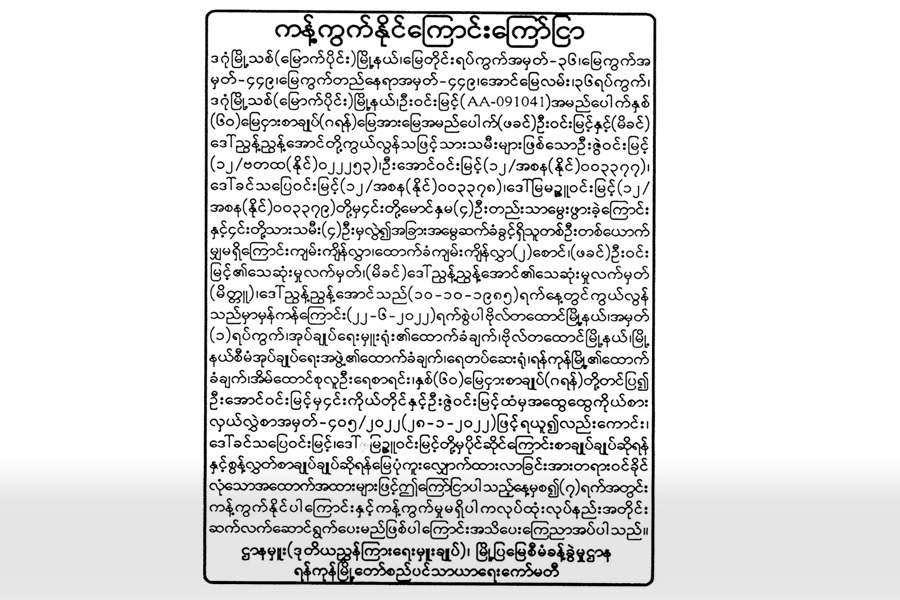 ကန့်ကွက်နိုင်ကြောင်းကြော်ငြာ
ဒဂုံမြို့သစ်(မြောက်ပိုင်း)မြို့နယ်၊မြေတိုင်းရပ်ကွက်အမှတ်-၃၆၊မြေကွက်အ
မှတ်-၄၄၉၊မြေကွက်တည်နေရာအမှတ်-၄၄၉၊အောင်မြေလမ်း၊၃၆ရပ်ကွက်၊
ဒဂုံမြို့သစ်(မြောက်ပိုင်း)မြို့နယ်၊ဦးဝင်းမြင့်(AA-091041)အမည်ပေါက်နှစ်
(၆၀)မြေငှားစာချုပ်(ဂရန်)မြေအားမြေအမည်ပေါက်(ဖခင်)ဦးဝင်းမြင့်နှင့်(မိခင်)
ဒေါ်ညွှန့်ညွှန့်အောင်တို့ကွယ်လွန်သဖြင့်သားသမီးများဖြစ်သောဦးဇွဲဝင်းမြင့်
(၁၂/ဗတထ(နိုင်)၀၂၂၂၅၃)၊ဦးအောင်ဝင်းမြင့်(၁၂/အစန(နိုင်)၀၀၃၃၇၇)၊
ဒေါ်ခင်သပြေဝင်းမြင့်(၁၂/အစန(နိုင်)၀၀၃၃၇၈)၊ဒေါ်မြမဥ္ဇူဝင်းမြင့်(၁၂/
အစန(နိုင်)၀၀၃၃၇၉)တို့မှ၄င်းတို့မောင်နှမ(၄)ဦးတည်းသာမွေးဖွားခဲ့ကြောင်း
နှင့်၄င်းတို့သားသမီး(၄)ဦးမှလွဲ၍အခြားအမွေဆက်ခံခွင့်ရှိသူတစ်ဦးတစ်ယောက်
မျှမရှိကြောင်းကျမ်းကျိန်လွှာ၊ထောက်ခံကျမ်းကျိန်လွှာ(၂)စောင်၊(ဖခင်)ဦးဝင်း
မြင့်၏သေဆုံးမှုလက်မှတ်၊(မိခင်)ဒေါ်ညွှန့်ညွှန့်အောင်၏သေဆုံးမှုလက်မှတ်
(မိတ္တူ)၊ဒေါ်ညွှန့်ညွှန့်အောင်သည်(၁၀-၁၀-၁၉၈၅)ရက်နေ့တွင်ကွယ်လွန်
သည်မှာမှန်ကန်ကြောင်း(၂၂-၆-၂၀၂၂)ရက်စွဲပါဗိုလ်တထောင်မြို့နယ်၊အမှတ်
(၁)ရပ်ကွက်၊အုပ်ချုပ်ရေးမှူးရုံး၏ထောက်ခံချက်၊ဗိုလ်တထောင်မြို့နယ်၊မြို့
နယ်စီမံအုပ်ချုပ်ရေးအဖွဲ့၏ထောက်ခံချက်၊ရေတပ်ဆေးရုံ၊ရန်ကုန်မြို့၏ထောက်
ခံချက်၊အိမ်ထောင်စုလူဦးရေစာရင်း၊နှစ်(၆၀)မြေငှားစာချုပ်(ဂရန်)တို့တင်ပြ၍
ဦးအောင်ဝင်းမြင့်မှ၄င်းကိုယ်တိုင်နှင့်ဦးဇွဲဝင်းမြင့်ထံမှအထွေထွေကိုယ်စား
လှယ်လွှဲစာအမှတ်-၄၀၅/၂၀၂၂(၂၈-၁-၂၀၂၂)ဖြင့်ရယူ၍လည်းကောင်း၊
ဒေါ်ခင်သပြေဝင်းမြင့်၊ဒေါ်မြမဥ္ဇူဝင်းမြင့်တို့မှပိုင်ဆိုင်ကြောင်းစာချုပ်ချုပ်ဆိုရန်
နှင့်စွန့်လွှတ်စာချုပ်ချုပ်ဆိုရန်မြေပုံကူးလျှောက်ထားလာခြင်းအားတရားဝင်ခိုင်
လုံသောအထောက်အထားများဖြင့်ဤကြော်ငြာပါသည့်နေ့မှစ၍(၇)ရက်အတွင်း
ကန့်ကွက်နိုင်ပါကြောင်းနှင့်ကန့်ကွက်မှုမရှိပါကလုပ်ထုံးလုပ်နည်းအတိုင်း
ဆက်လက်ဆောင်ရွက်ပေးမည်ဖြစ်ပါကြောင်းအသိပေးကြေညာအပ်ပါသည်။
ဌာနမှူး(ဒုတိယညွှန်ကြားရေးမှူးချုပ်)၊ မြို့ပြမြေစီမံခန့်ခွဲမှုဌာန
ရန်ကုန်မြို့တော်စည်ပင်သာယာရေးကော်မတီ